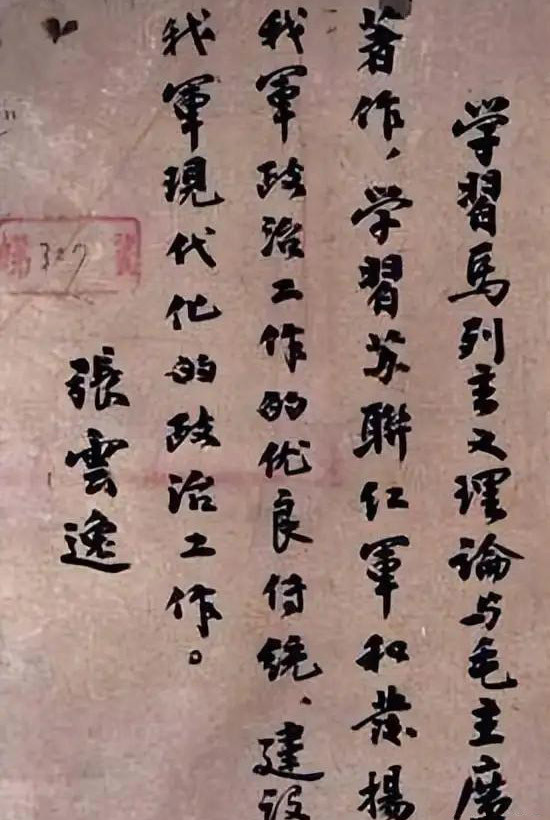 学習馬列主义理論与毛主席
著作，学習苏聯红軍和発揚
我軍政治工作的优良传统、建設
我軍現代化的政治工作。
張雲逸
327